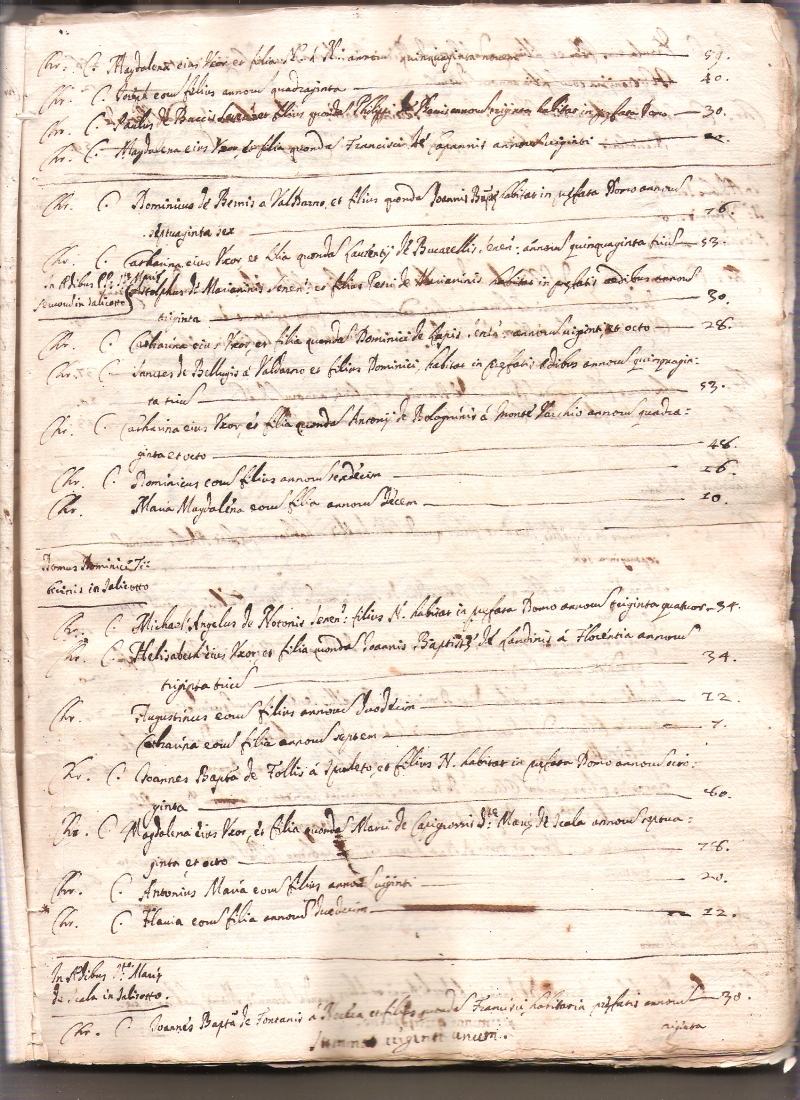 Chr. C. Magdalena eius Uxor et filia N. annorum quinquaginta novem — 59.
Chr. C. eorum filius annorum quadraginta — 40.
Chr. C. Paulus de Buccis et filius quondam annorum triginta habitat in præfata Domo — 30.
Chr. C. Magdalena eius Uxor, et filia quondam Francisci de annorum uiginti
Chr. C. Dominicus de Remis a Valdarno, et filius quondam Joannis Baptæ habitat in præfata Domo annorum
septuaginta sex — 76.
Chr. C. Catharina eius Uxor et filia quondam Laurentij de Bucarellis Senen: annorum quinquaginta trium — 53.
In Ædibus
in Salicotto
Astolphus de Marianinis Senen: et filius Petri de Marianinis habitat in præfatis ædibus annorum
triginta — 30.
Chr. C. Catharina eius Uxor, et filia quondam Dominici de annorum uiginti et octo — 28.
Chr. C. Sanctes de Bellugis á Valdarno et filius Dominici, habitat in præfatis ædibus annorum quinquagin:
ta trium — 53.
Chr. C. Catharina eius Uxor et filia quondam Antonij de Bologninis á Monte Varchio annorum quadra:
ginta et octo — 48.
Chr. C. Dominicus eorum filius annorum sexdecim — 16.
Chr. C. Maria Magdalena eorum filia annorum decem — 10.
Domus Dominici
in Salicotto
Chr. C. Michael Angelus de Notonis Senen: filius N. habitat in præfata Domo annorum triginta quatuor — 34.
Chr. C. Helisabeth eius Uxor, et filia quondam Joannis Baptistæ de Landinis á Florentia annorum
triginta trium — 34.
Chr. C. Augustinus eorum filius annorum duodecim — 12.
Catharina eorum filia annorum septem — 7.
Chr. C. Joannes Bapta de Follis á Spuleto, et filius N. habitat in præfata Domo annorum octo:
ginta — 80.
Chr. C. Magdalena eius Uxor, et filia quondam Marci de Mariæ de Scala annorum septua:
ginta et octo — 78.
Chr. C. Antonius Maria eorum filius annorum uiginti — 20.
Chr. C. Flavia eorum filia annorum duodecim — 12.
In Ædibus Stæ Mariæ
de Scala in Salicotto.
Chr. C. Joannes Bapta de Fontanis á et filius quondam Francisci habitat in præfatis annorum — 30.
triginta
Summa uiginti unum.